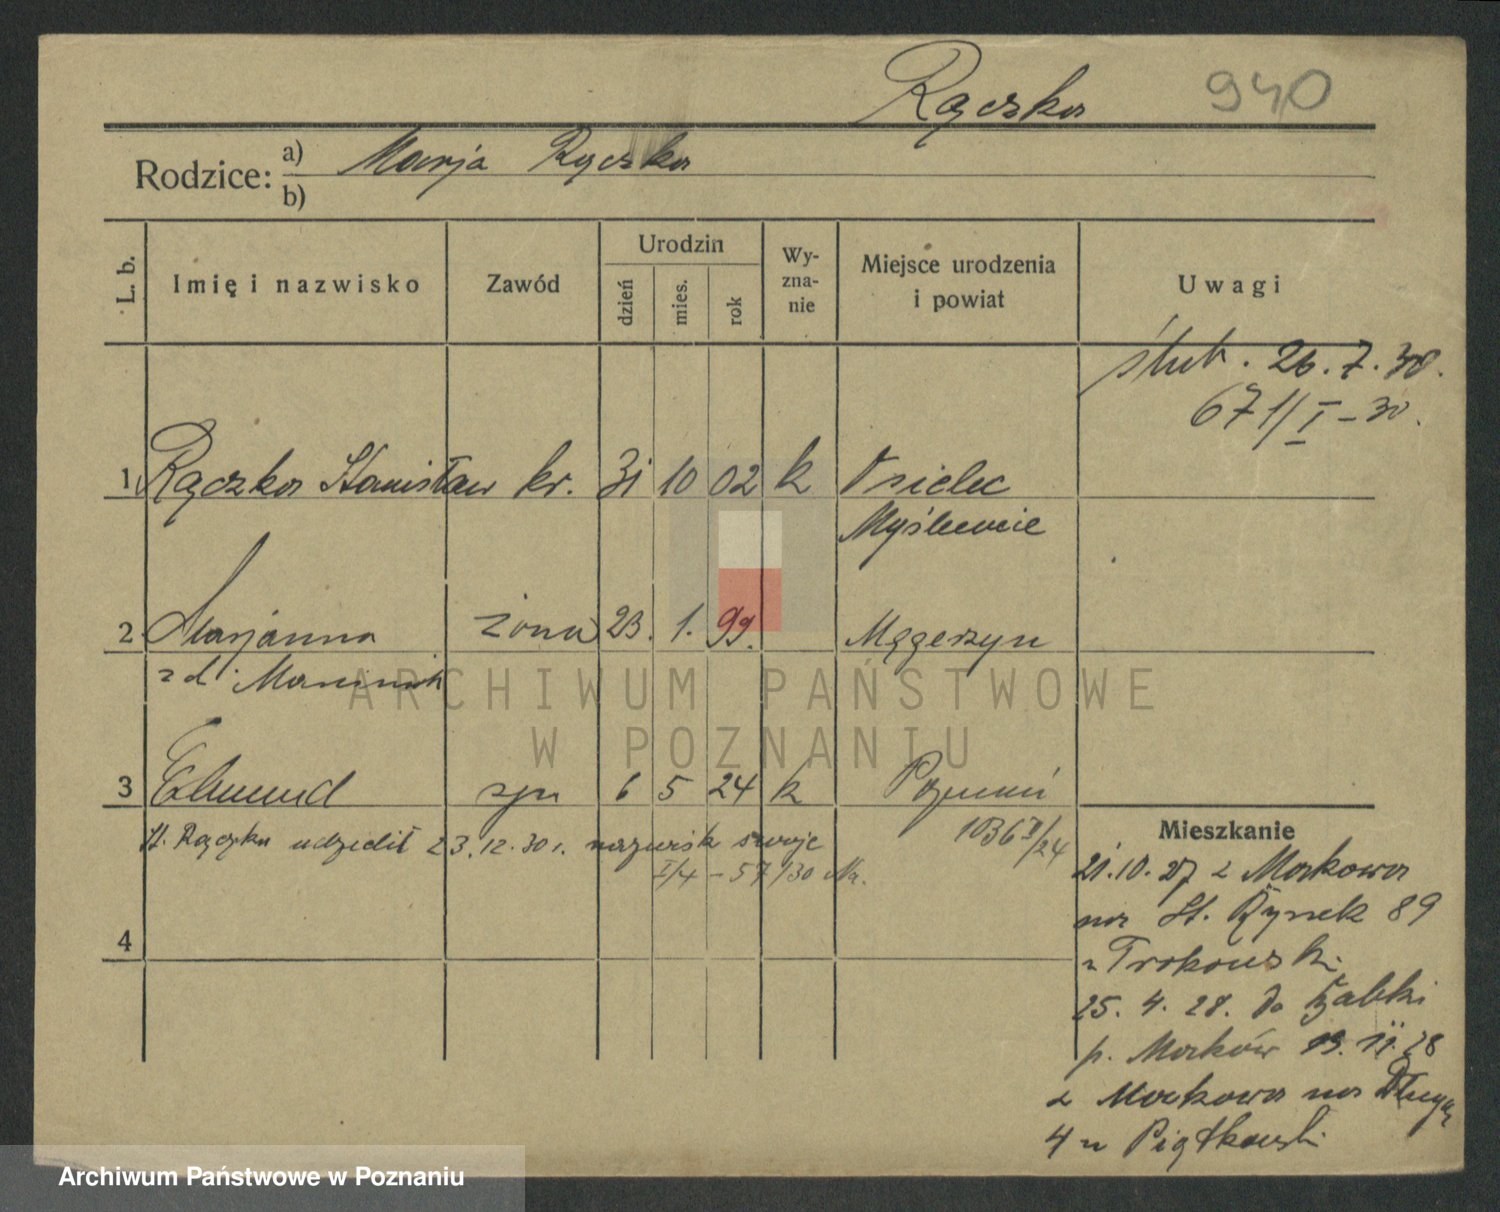 Rączka 940
Rodzice: a) Marja Rączka
b)
L. b. Imię i nazwisko Zawód Urodzin dzień mies. rok Wy-zna-nie Miejsce urodzenia i powiat Uwagi
ślub. 26.7.30.
671/I-30.
1 Rączka Stanisław kr. 31 10 02 k Osielec
Myślenice
2 Marjanna żona 23. 1. 99. Mągerzyn
z d.
3 Edmund syn 6 5 24 k Poznań
1036 II/24
St. Rączka udzielił 23.12.30 r. nazwisk swoje
I/4 - 57/30 Na.
4
Mieszkanie
21.10.27 z Makowa
na St. Rynek 89
u Trokowski
25.4.28. do Żabki
p. Maków 13.11.28
z Makowa na Długą
4 u Piątkowski
ARCHIWUM PAŃSTWOWE
W POZNANIU
Archiwum Państwowe w Poznaniu